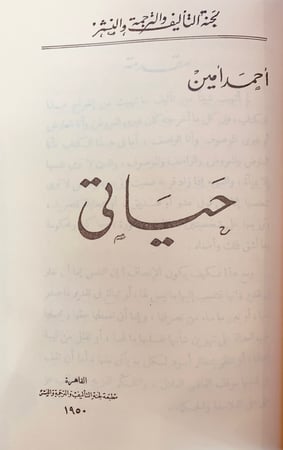 لجنة التأليف والترجمة والنشر
أحمد أمين
حياتى
القاهرة
مطبعة لجنة التأليف والترجمة والنشر
١٩٥٠